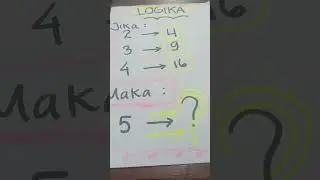 LOGIKA
Jika :
2 → 4
3 → 9
4 → 16
Maka :
5 → ?